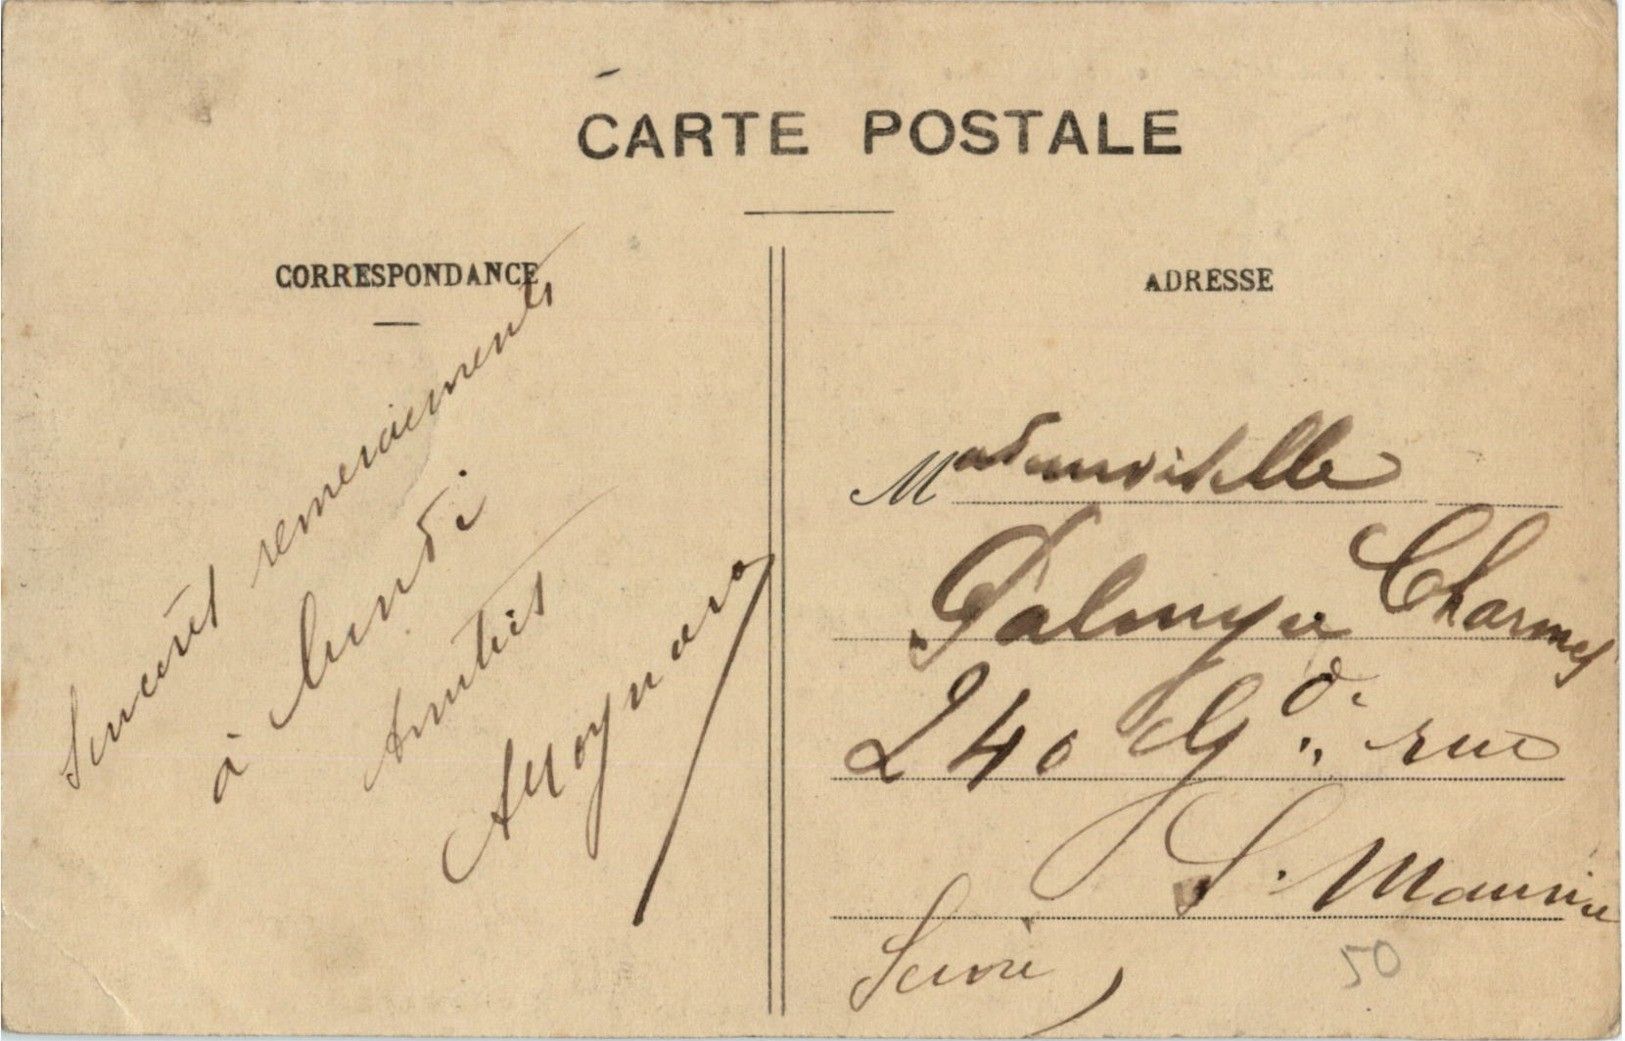 CARTE POSTALE
CORRESPONDANCE
Sincères remerciements
à lundi
Amitiés
ADRESSE
Mademoiselle
Palmyre Charmes
240 Gde rue
St. Maurice
Seine
50